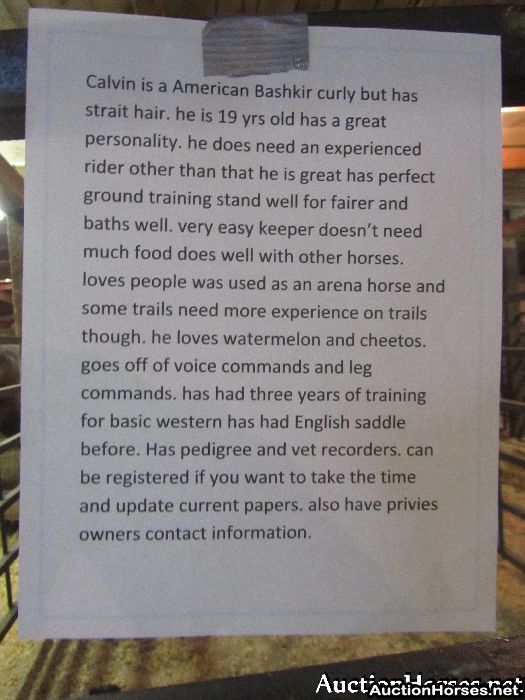 Calvin is a American Bashkir curly but has
strait hair. he is 19 yrs old has a great
personality. he does need an experienced
rider other than that he is great has perfect
ground training stand well for fairer and
baths well. very easy keeper doesn't need
much food does well with other horses.
loves people was used as an arena horse and
some trails need more experience on trails
though. he loves watermelon and cheetos.
goes off of voice commands and leg
commands. has had three years of training
for basic western has had English saddle
before. Has pedigree and vet recorders. can
be registered if you want to take the time
and update current papers. also have privies
owners contact information.
AuctionHorses.net
AuctionHorses.net